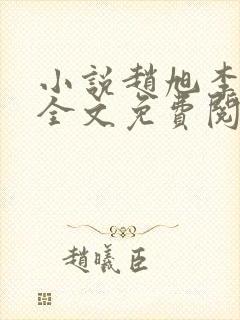 小說趙旭李
全文免費閱
趙曦臣